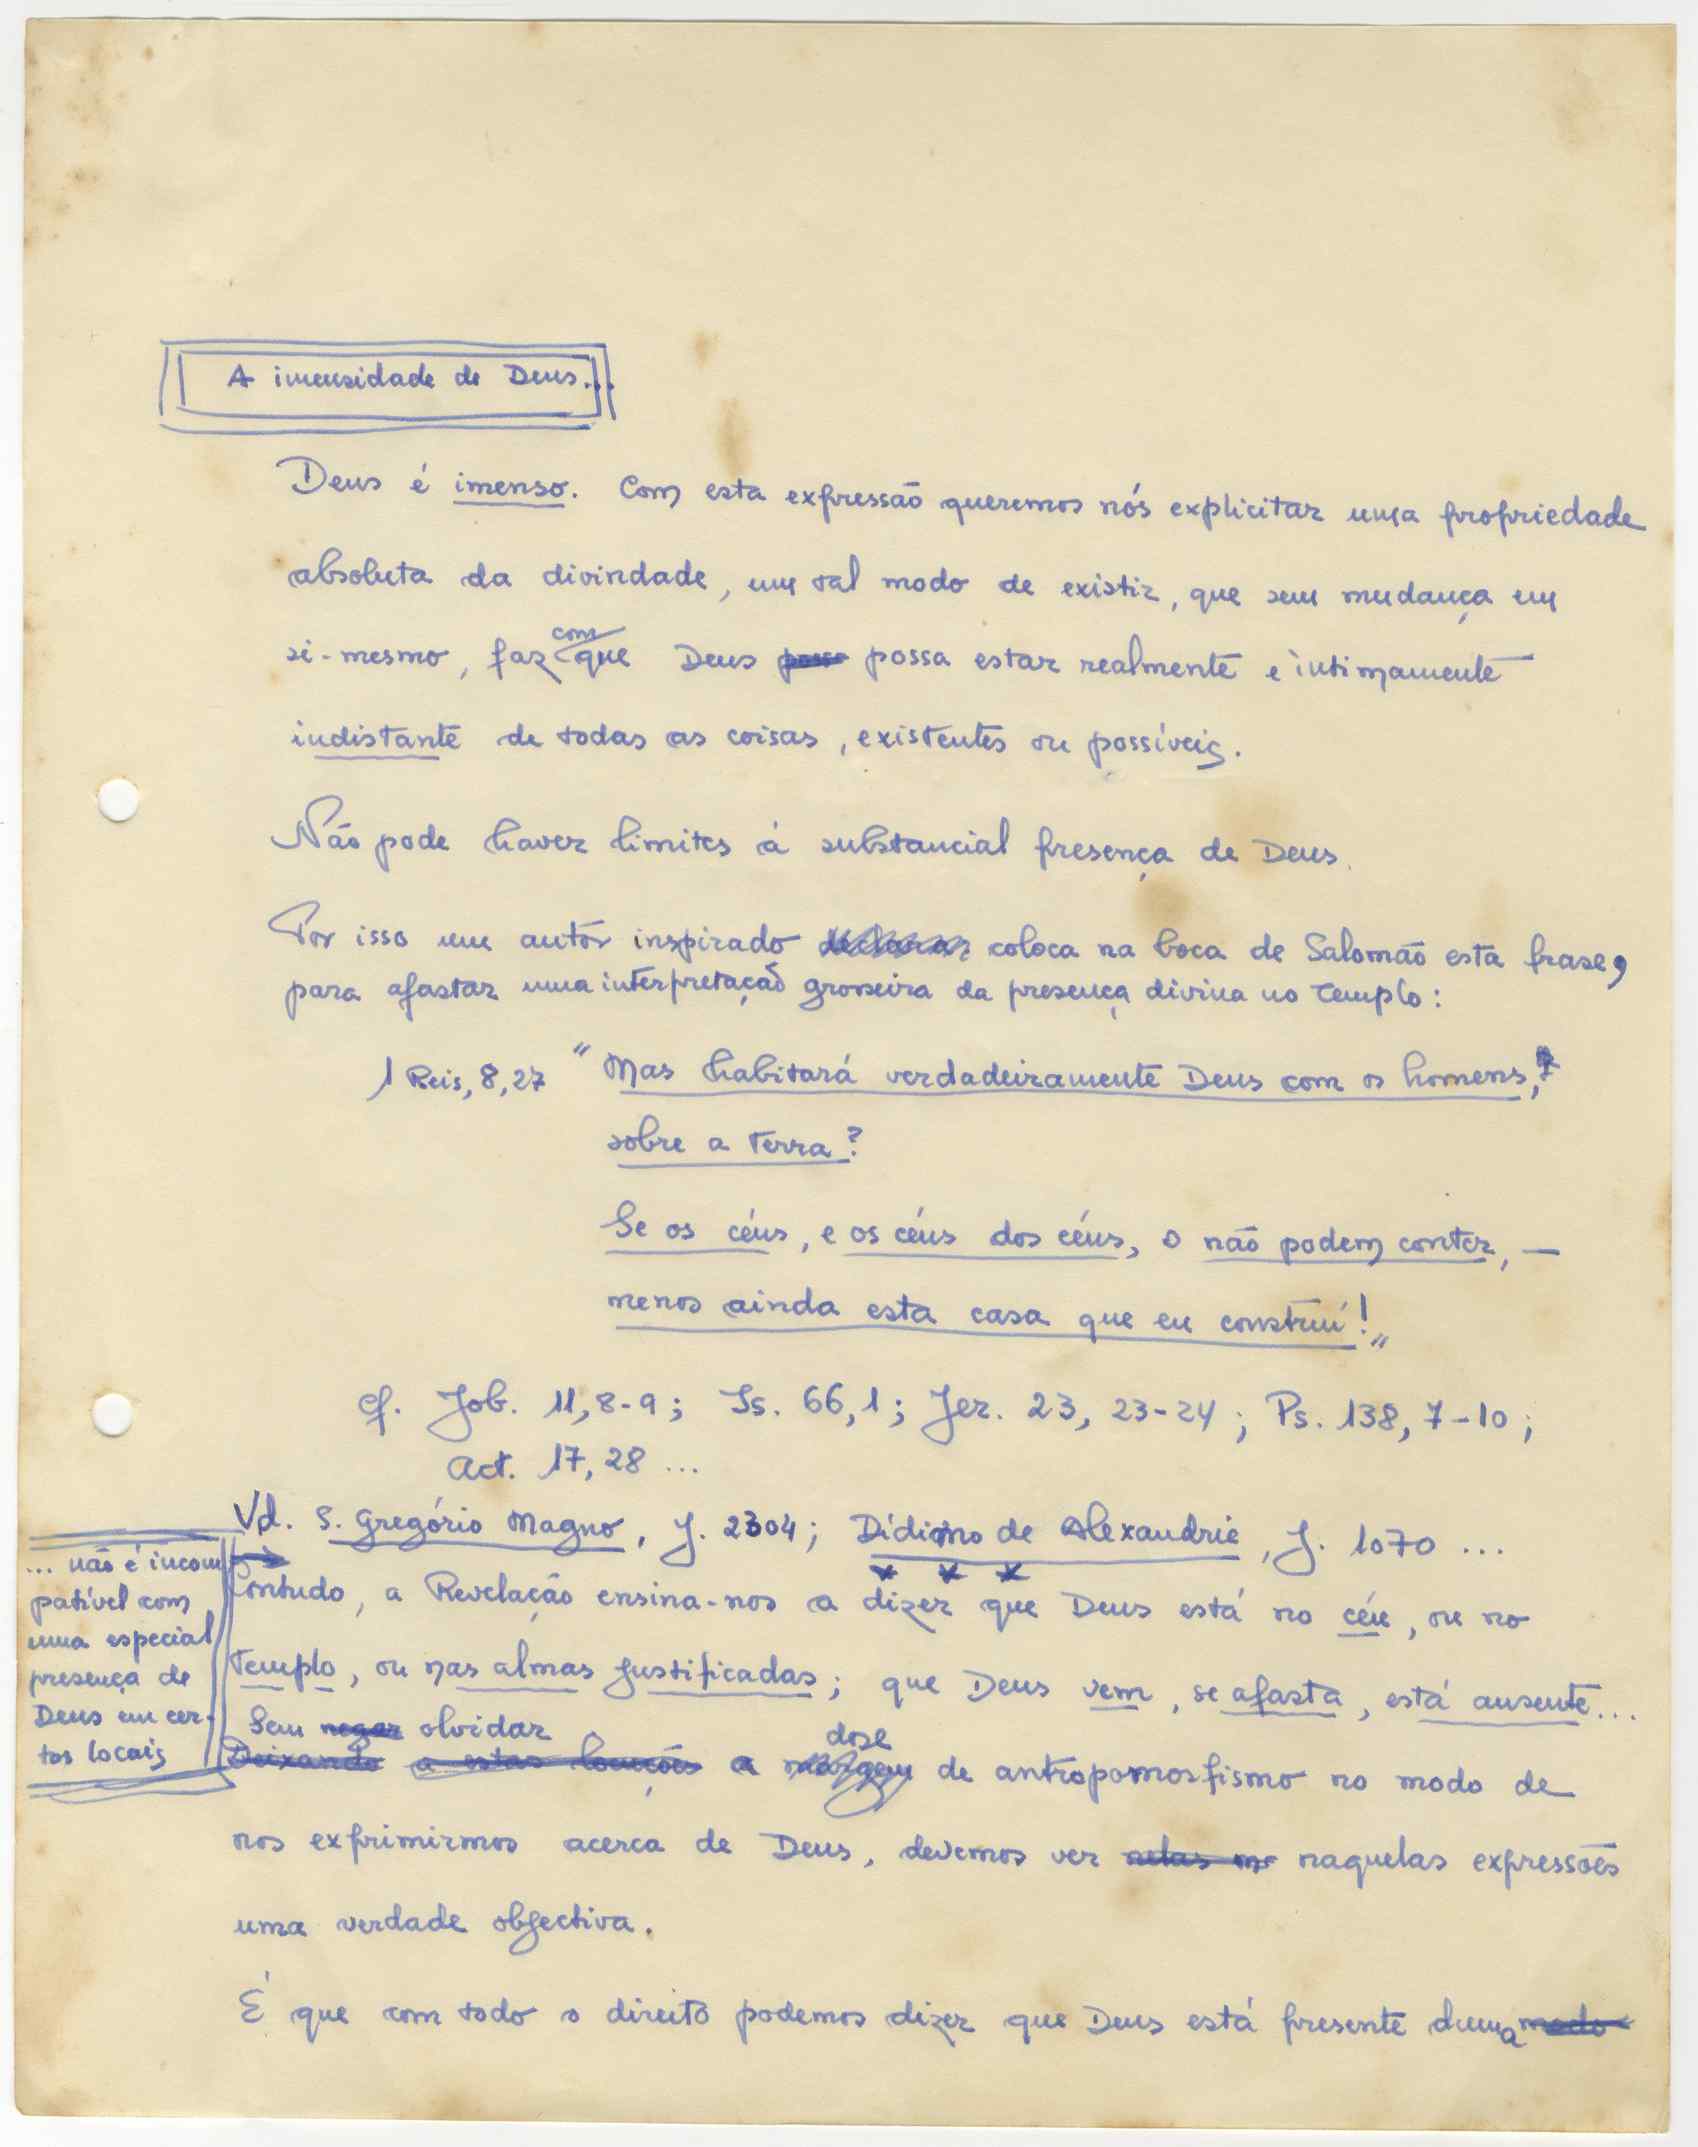 A imensidade de Deus...
Deus é imenso. Com esta expressão queremos nós explicitar uma propriedade
absoluta da divindade, um tal modo de existir, que sem mudança em
si-mesmo, faz com que Deus posso possa estar realmente e intimamente
indistante de todas as coisas, existentes ou possíveis.
Não pode haver limites à substancial presença de Deus.
Por isso um autor inspirado coloca na boca de Salomão esta frase,
para afastar uma interpretação grosseira da presença divina no Templo:
1 Reis, 8, 27 "Mas habitará verdadeiramente Deus com os homens,
sobre a Terra?
Se os céus, e os céus dos céus, o não podem conter, —
menos ainda esta casa que eu construí!"
Cf. Job. 11, 8-9; Is. 66, 1; Jer. 23, 23-24; Ps. 138, 7-10;
Act. 17, 28 ...
Vd. S. Gregório Magno, J. 2304; Dídimo de Alexandria, J. 1070 ...
... não é incom
patível com
uma especial
presença de
Deus em cer-
tos locais
Contudo, a Revelação ensina-nos a dizer que Deus está no céu, ou no
Templo, ou nas almas justificadas; que Deus vem, se afasta, está ausente...
Sem negar olvidar dose
Deixando a estas locuções a margem de antropomorfismo no modo de
nos exprimirmos acerca de Deus, devemos ver nelas naquelas expressões
uma verdade objectiva.
É que com todo o direito podemos dizer que Deus está presente duma modo